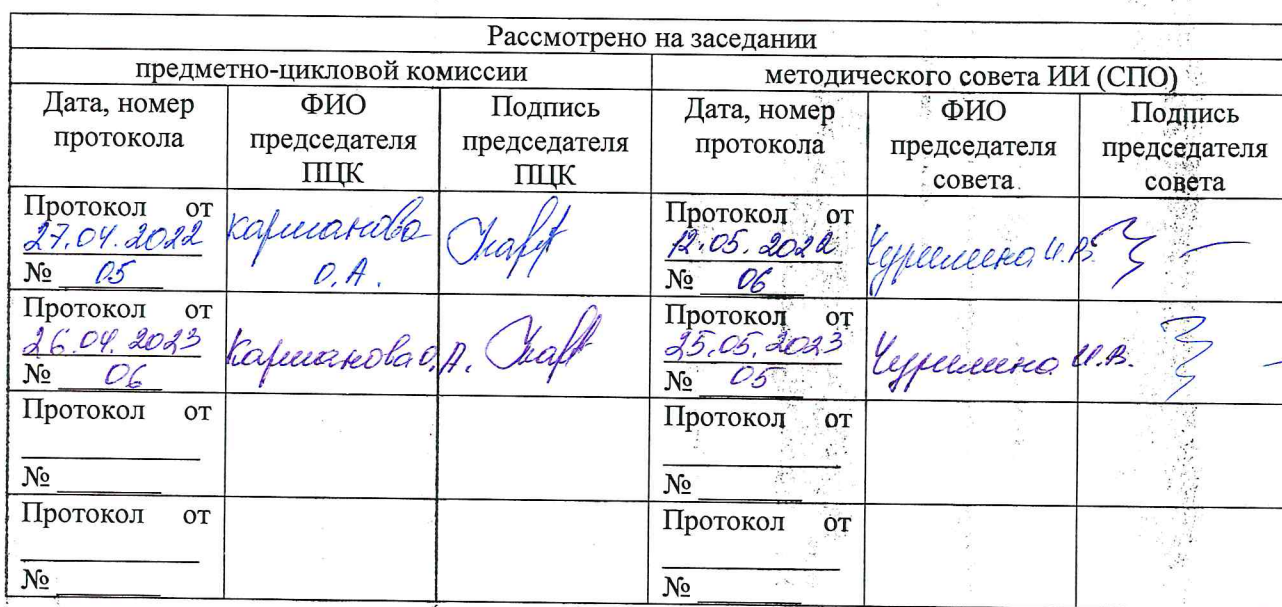 Рассмотрено на заседании
предметно-цикловой комиссии методического совета ИИ (СПО)
Дата, номер протокола ФИО председателя ПЦК Подпись председателя ПЦК Дата, номер протокола ФИО председателя совета Подпись председателя совета
Протокол от
27.04.2022
№ 05
Карманова
О.А.
Протокол от
12.05.2022
№ 06
Чурилина И.В.
Протокол от
26.04.2023
№ 06
Карманова О.А.
Протокол от
25.05.2023
№ 05
Чурилина И.В.
Протокол от
№
Протокол от
№
Протокол от
№
Протокол от
№